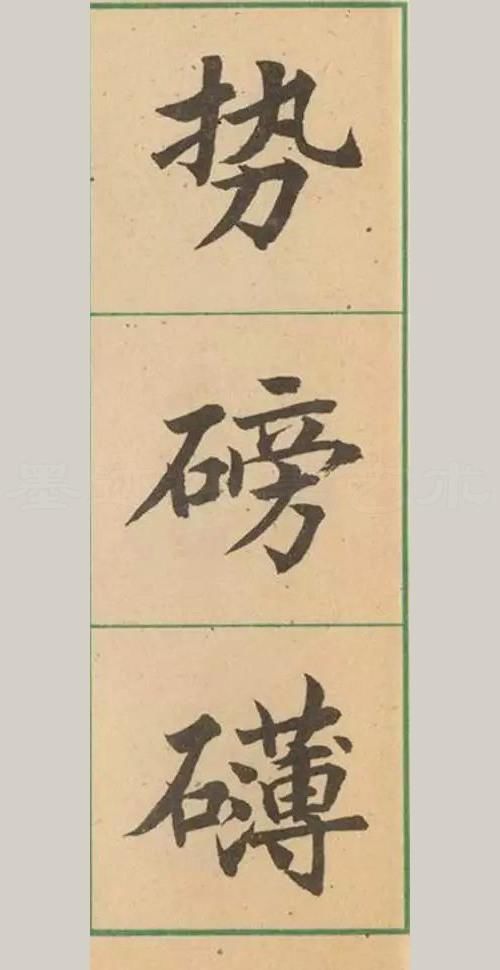 势
磅
礴